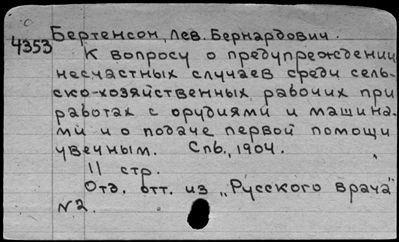 Бертенсон, Лев. Бернардович.
4353
К вопросу о предупреждении
несчастных случаев среди сель-
ско-хозяйственных рабочих при
работах с орудиями и машина-
ми и о подаче первой помощи
увечным. Спб., 1904.
11 стр.
Отд. отт. из „Русского врача"
№2.